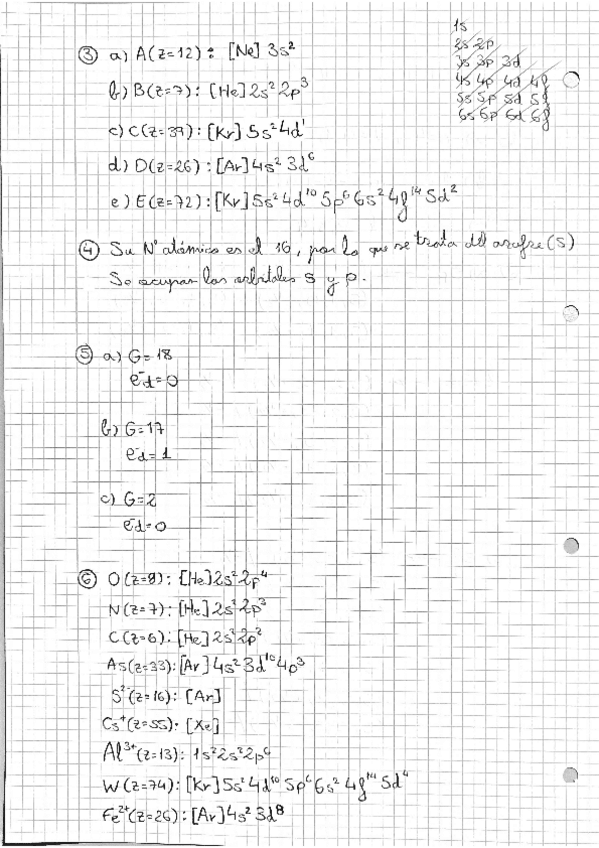 1s
2s 2p
3s 3p 3d
4s 4p 4d 4f
5s 5p 5d 5f
6s 6p 6d 6f
③ a) A(z=12): [Ne] 3s²
b) B(z=7): [He] 2s² 2p³
c) C(z=39): [Kr] 5s² 4d¹
d) D(z=26): [Ar] 4s² 3d⁶
e) E(z=72): [Kr] 5s² 4d¹⁰ 5p⁶ 6s² 4f¹⁴ 5d²
④ Su Nº atómico es el 16, por lo que se trata del azufre (S)
Se ocupan los orbitales s y p.
⑤ a) G=18
e⁻d=0
b) G=17
e⁻d=1
c) G=2
e⁻d=0
⑥ O(z=8): [He] 2s² 2p⁴
N(z=7): [He] 2s² 2p³
C(z=6): [He] 2s² 2p²
As(z=33): [Ar] 4s² 3d¹⁰ 4p³
S²⁻(z=16): [Ar]
Cs⁺(z=55): [Xe]
Al³⁺(z=13): 1s² 2s² 2p⁶
W(z=74): [Kr] 5s² 4d¹⁰ 5p⁶ 6s² 4f¹⁴ 5d⁴
Fe²⁺(z=26): [Ar] 4s² 3d⁸